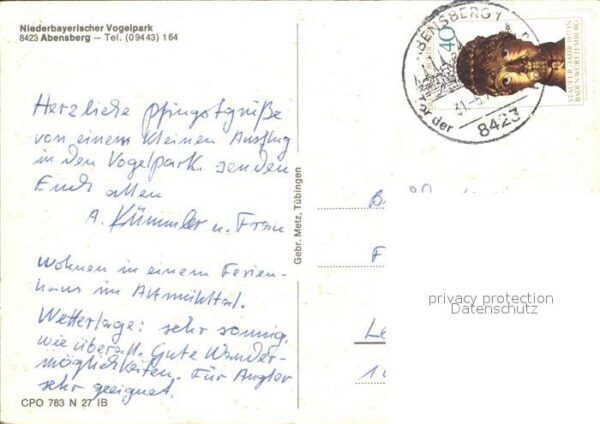 Niederbayerischer Vogelpark
8423 Abensberg – Tel. (09443) 164
Herzliche Pfingstgrüße
von einem kleinen Ausflug
in den Vogelpark senden
Euch allen
A. Kümmler u. Frau
Wohnen in einem Ferien-
haus im Altmühltal.
Wetterlage: sehr sonnig,
wie überall. Gute Wander-
möglichkeiten. Für Angler
sehr geeignet.
CPO 783 N 27 IB
Gebr. Metz, Tübingen
ABENSBERG 1
8423
vor der
40
STAUFER-JAHR 1977 IN
BADEN-WÜRTTEMBERG
F
Le
privacy protection
Datenschutz